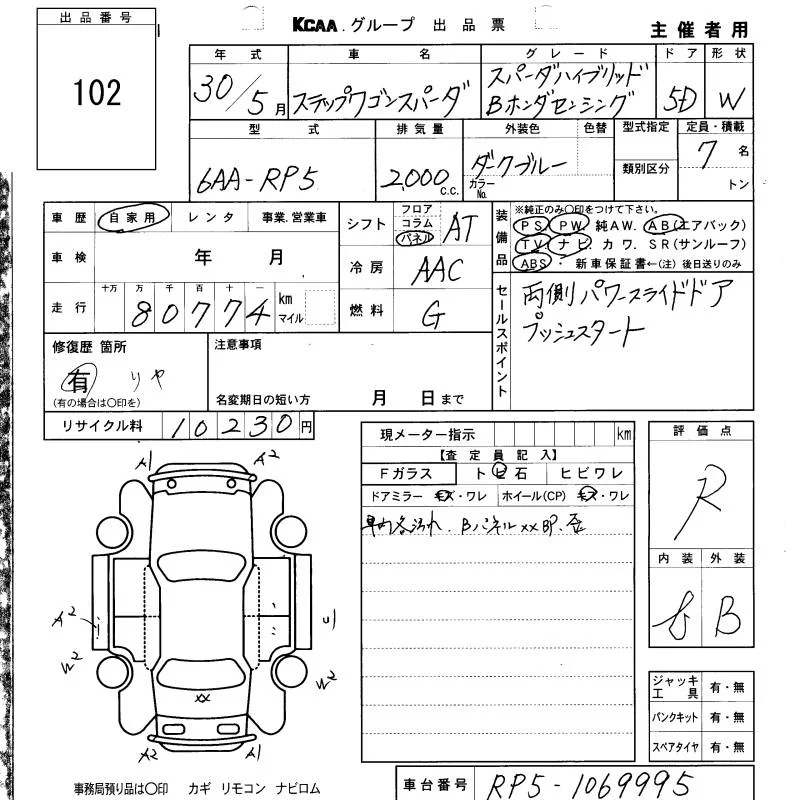 出品番号
102
KCAA.グループ 出品票
主催者用
年式 車名 グレード ドア 形状
30/5月 ステップワゴンスパーダ スパーダハイブリッド
Bホンダセンシング 5D W
型式 排気量 外装色 色替 型式指定 定員・積載
6AA-RP5 2,000 c.c. ダークブルー 7名
カラーNo. 類別区分 トン
車歴 自家用 レンタ 事業.営業車
シフト フロア コラム パネル AT
装備品 ※純正のみ〇印をつけて下さい。
PS PW 純AW. AB(エアバック)
TV ナビ. カワ. SR(サンルーフ)
ABS ・ 新車保証書←(注) 後日送りのみ
車検 年 月
冷房 AAC
走行 十万 万 千 百 十 一
80774 km マイル
燃料 G
セールスポイント 両側パワースライドドア
プッシュスタート
修復歴 箇所
有 リヤ
(有の場合は〇印を)
注意事項
名変期日の短い方 月 日まで
リサイクル料 10230円
現メーター指示 km
【査定員記入】
Fガラス トビ石 ヒビワレ
ドアミラー キズ・ワレ ホイール(CP) キズ・ワレ
車内各汚れ. Bパネルxx BP.歪
評価点
R
内装 外装
B
A1 A2
A2
W2
W2
xx
A2 A1
ジャッキ 工具 有・無
パンクキット 有・無
スペアタイヤ 有・無
事務局預り品は〇印 カギ リモコン ナビロム
車台番号 RP5-1069995